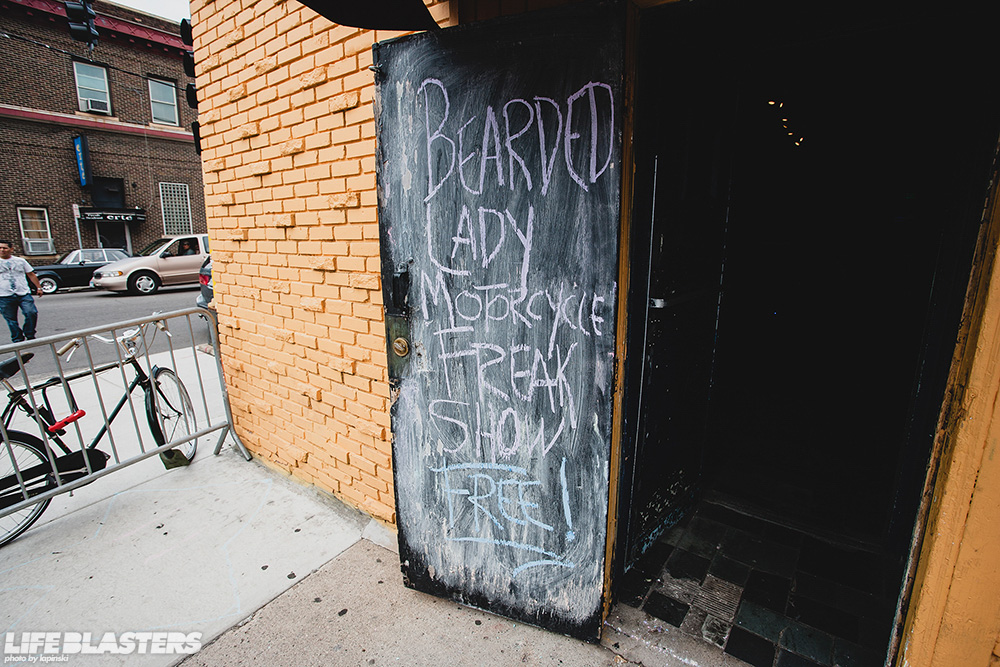 BEARDED
LADY
MOTORCYCLE
FREAK
SHOW
FREE!
erté
LIFE BLASTERS
photo by lapinski